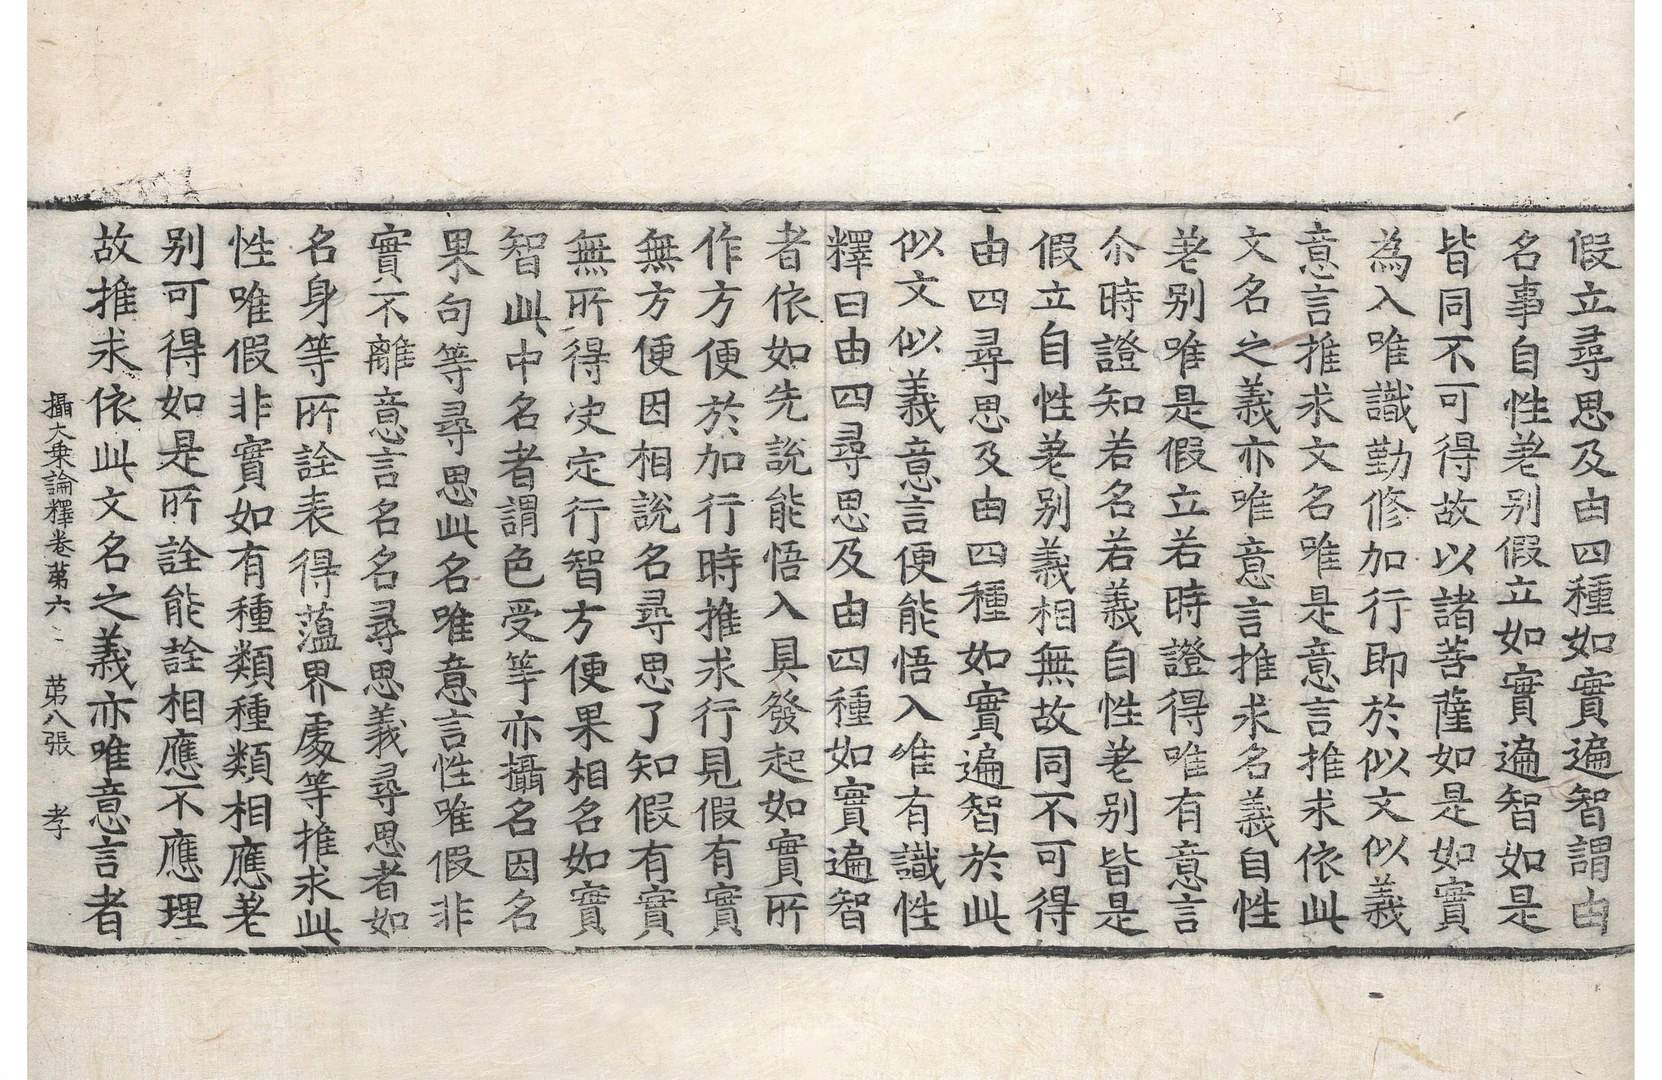 假立尋思及由四種如實遍智謂由
名事自性差别假立如實遍智如是
皆同不可得故以諸菩薩如是如實
為入唯識勤修加行即於似文似義
意言推求文名唯是意言推求依此
文名之義亦唯意言推求名義自性
差别唯是假立若時證得唯有意言
尒時證知若名若義自性差别皆是
假立自性差别義相無故同不可得
由四尋思及由四種如實遍智於此
似文似義意言便能悟入唯有識性
釋曰由四尋思及由四種如實遍智
者依如先說能悟入具發起如實所
作方便於加行時推求行見假有實
無方便因相說名尋思了知假有實
無所得决定行智方便果相名如實
智此中名者謂色受等亦攝名因名
果句等尋思此名唯意言性唯假非
實不離意言名名尋思義尋思者如
名身等所詮表得薀界處等推求此
性唯假非實如有種類種類相應差
别可得如是所詮能詮相應不應理
故推求依此文名之義亦唯意言者
攝大乗論釋卷苐六 苐八張 孝